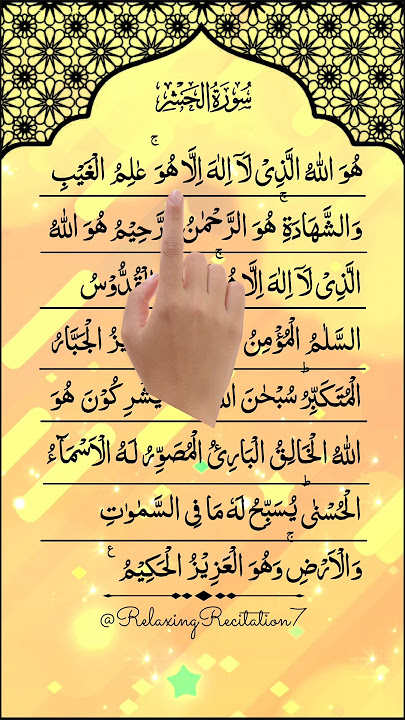 سُوْرَةُ الْحَشْرِ
هُوَ اللّٰهُ الَّذِیْ لَاۤ اِلٰهَ اِلَّا هُوَ ۚ عٰلِمُ الْغَیْبِ
وَالشَّهَادَةِ ۚ هُوَ الرَّحْمٰنُ الرَّحِیْمُ هُوَ اللّٰهُ
الَّذِیْ لَاۤ اِلٰهَ اِلَّا الْقُدُّوْسُ
السَّلٰمُ الْمُؤْمِنُ الْجَبَّارُ
الْمُتَكَبِّرُ ؕ سُبْحٰنَ یُشْرِكُوْنَ هُوَ
اللّٰهُ الْخَالِقُ الْبَارِئُ الْمُصَوِّرُ لَهُ الْاَسْمَآءُ
الْحُسْنٰی ؕ یُسَبِّحُ لَهٗ مَا فِی السَّمٰوٰتِ
وَالْاَرْضِ ۚ وَهُوَ الْعَزِیْزُ الْحَكِیْمُ ع
@RelaxingRecitation7